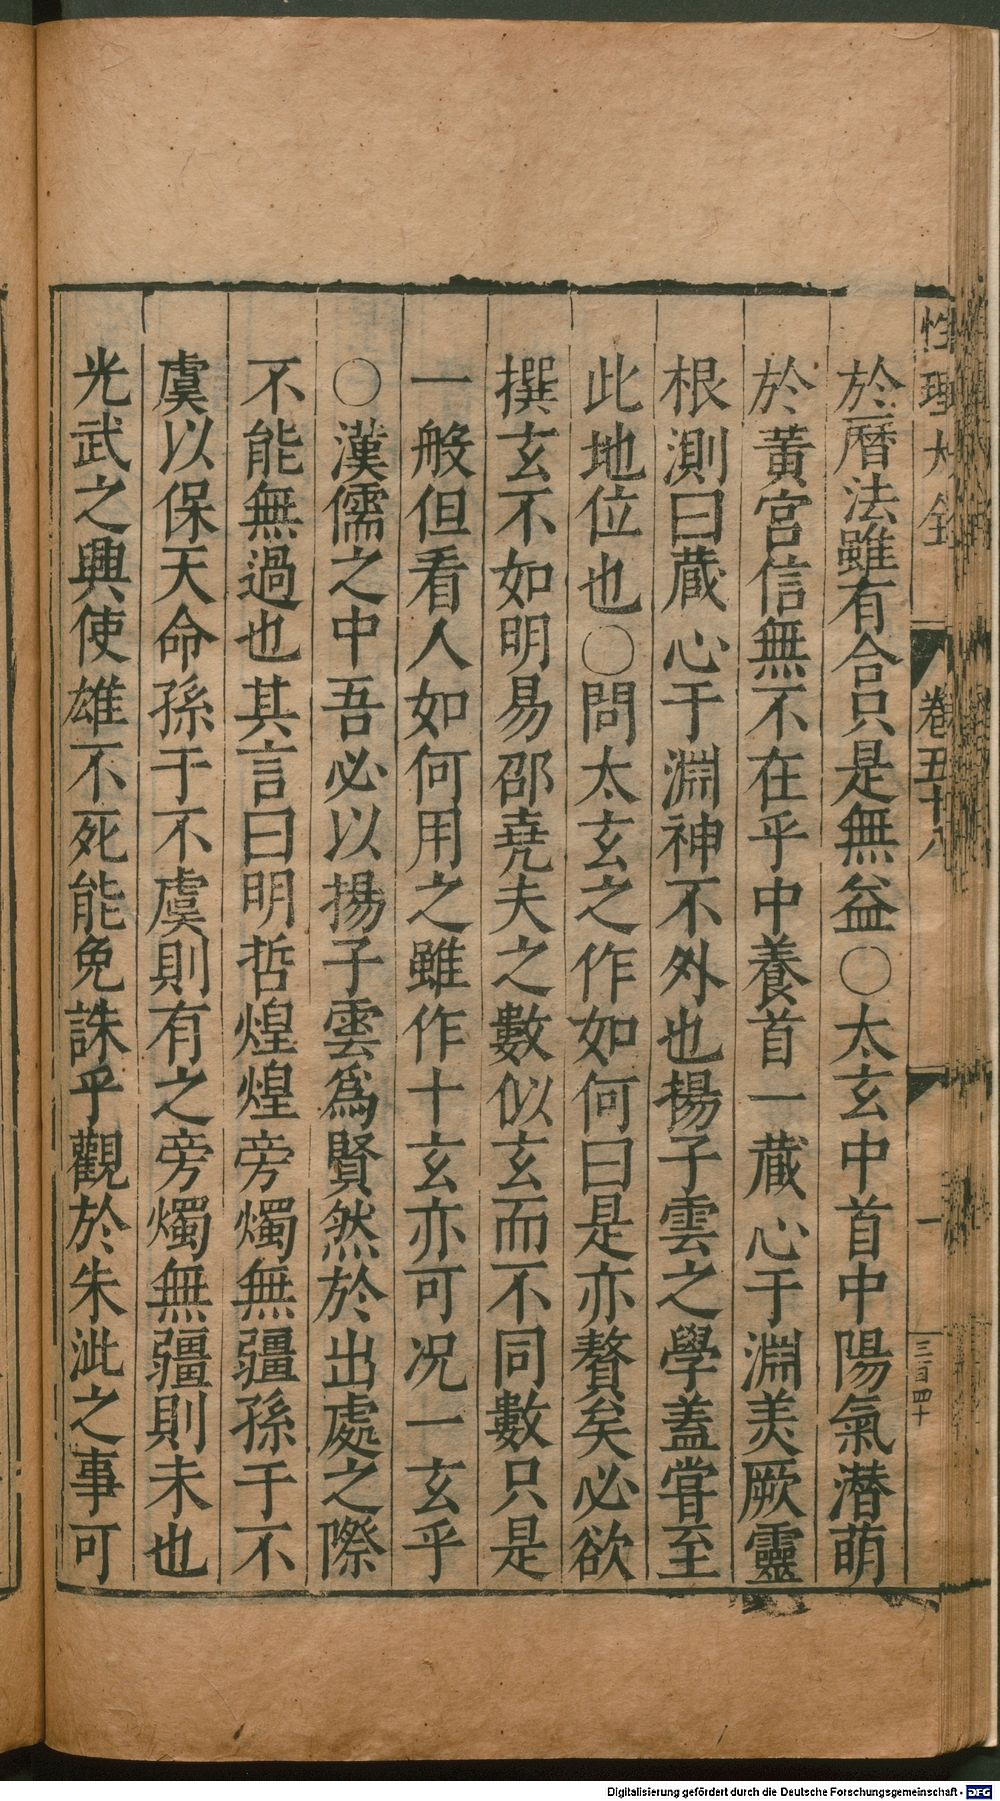 性理大全 卷五十八 一 三百四十
於曆法雖有合只是無益○太玄中首中陽氣潛萌
於黃宮信無不在乎中養首一藏心于淵美厥靈
根測曰藏心于淵神不外也揚子雲之學蓋嘗至
此地位也○問太玄之作如何曰是亦贅矣必欲
撰玄不如明易邵堯夫之數似玄而不同數只是
一般但看人如何用之雖作十玄亦可况一玄乎
○漢儒之中吾必以揚子雲爲賢然於出處之際
不能無過也其言曰明哲煌煌旁燭無疆孫于不
虞以保天命孫于不虞則有之旁燭無疆則未也
光武之興使雄不死能免誅乎觀於朱泚之事可
Digitalisierung gefördert durch die Deutsche Forschungsgemeinschaft - DFG